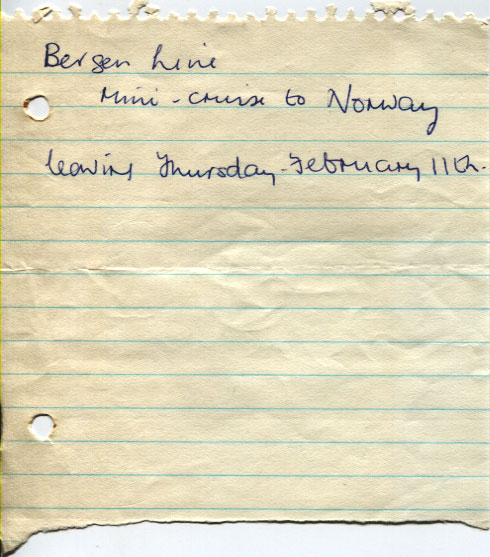 Bergen Line
Mini-cruise to Norway
leaving Thursday-February 11th.